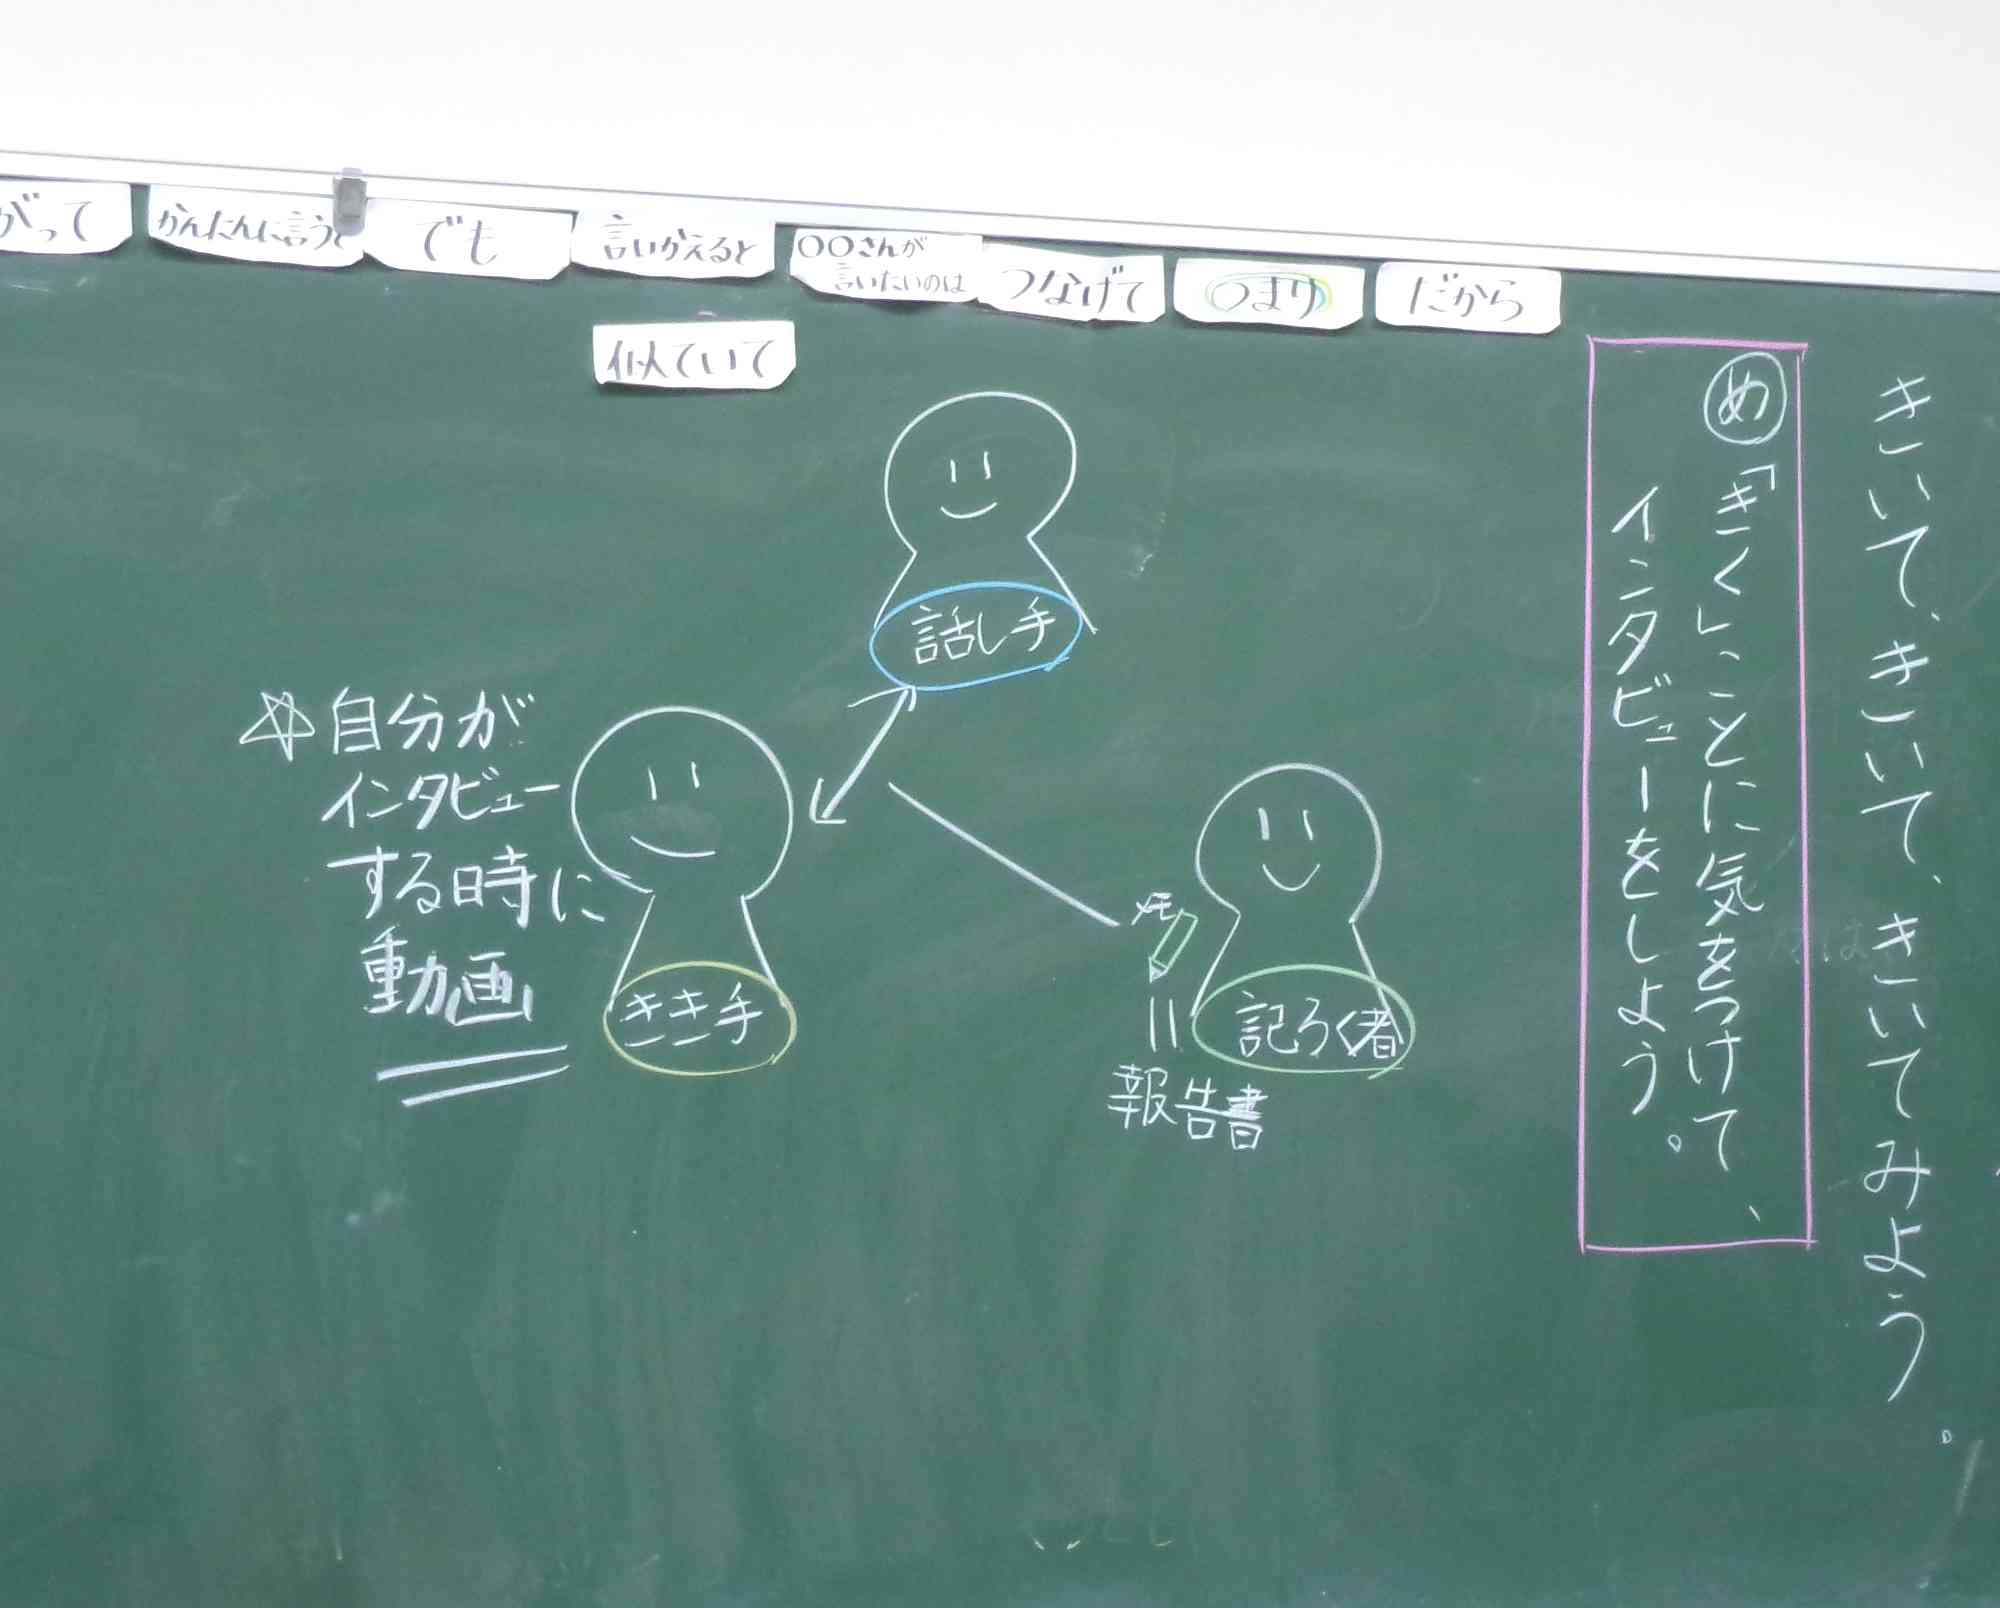 きいて、きいて、きいてみよう。
め「きく」ことに気をつけて、
インタビューをしよう。
だから
つまり
つなげて
〇〇さんが
言いたいのは
言いかえると
似ていて
でも
かんたんに言うと
がって
話し手
記ろく者
メモ
報告書
きき手
☆自分が
インタビュー
する時に
動画